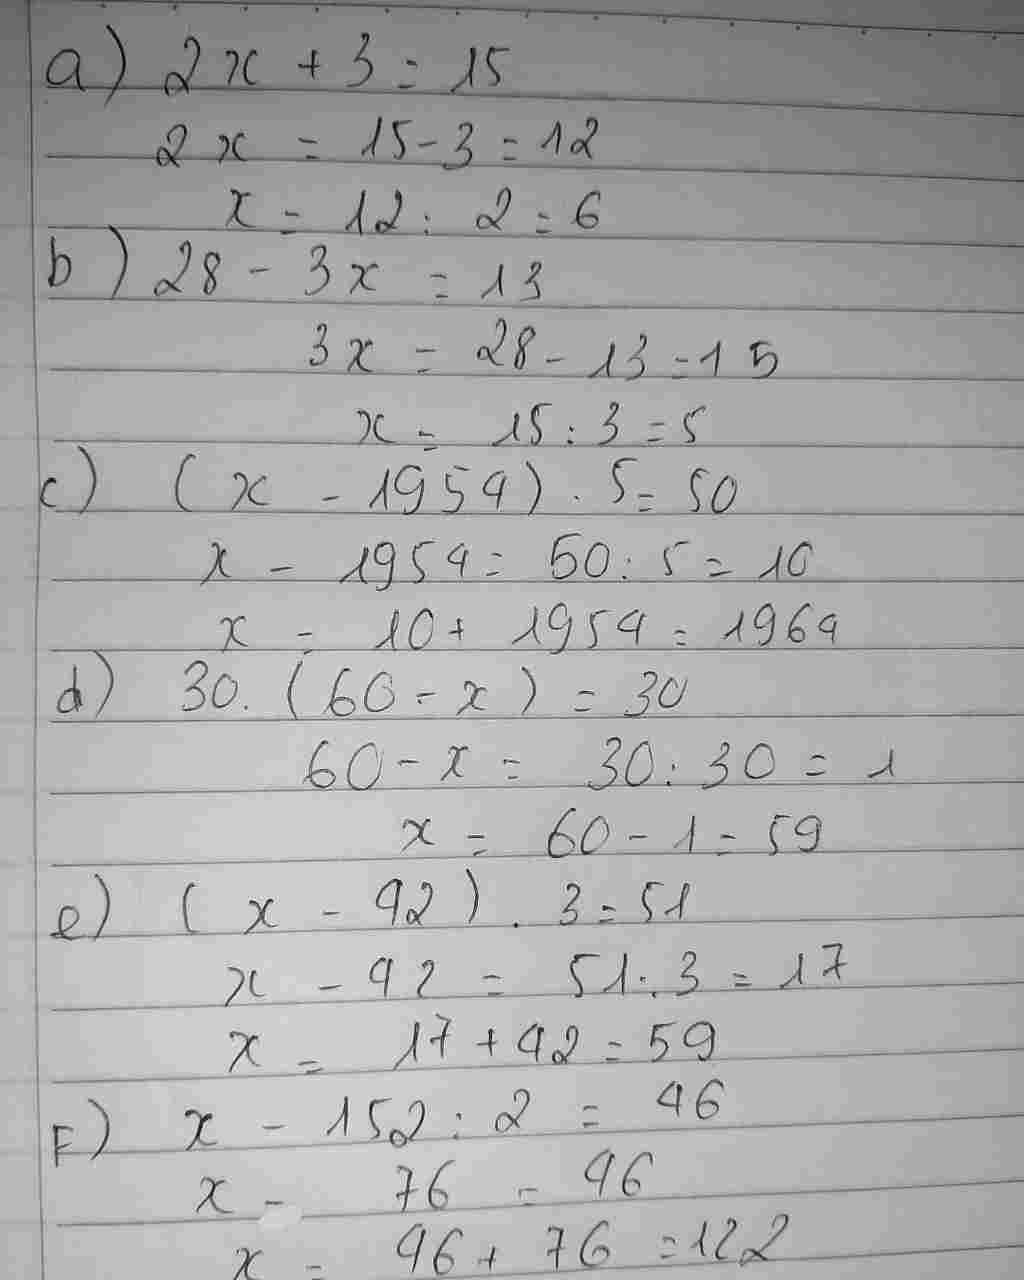 a) 2x + 3 = 15
2x = 15 - 3 = 12
x = 12 : 2 = 6
b) 28 - 3x = 13
3x = 28 - 13 = 15
x = 15 : 3 = 5
c) (x - 1954) . 5 = 50
x - 1954 = 50 : 5 = 10
x = 10 + 1954 = 1964
d) 30. (60 - x) = 30
60 - x = 30 : 30 = 1
x = 60 - 1 = 59
e) (x - 42) . 3 = 51
x - 42 = 51 : 3 = 17
x = 17 + 42 = 59
F) x - 152 : 2 = 46
x - 76 = 46
x = 46 + 76 = 122